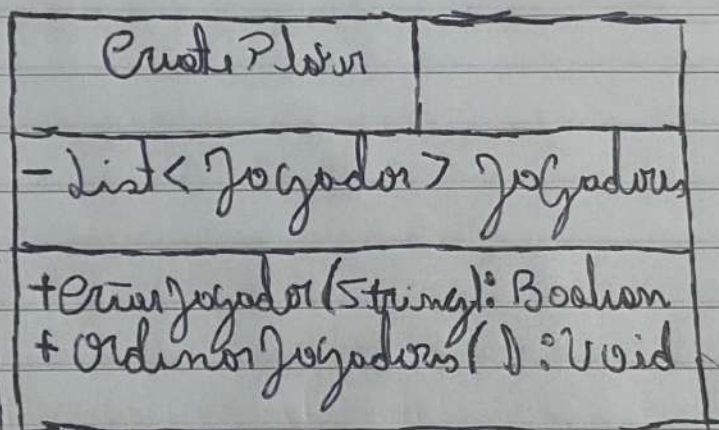 Create Player
- List<Jogador> Jogadores
+ criarJogador(String): Boolean
+ OrdenarJogadores( ): Void